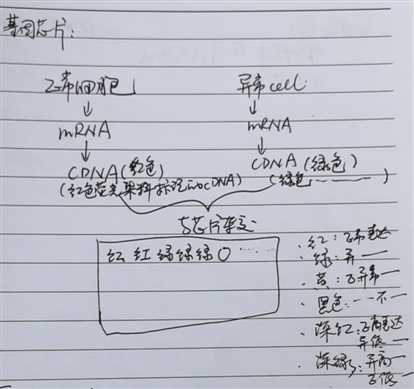 基因芯片:
正常细胞 异常cell
mRNA mRNA
CDNA(红色) CDNA(绿色)
(红色荧光染料标记的CDNA) (绿色 )
与芯片杂交
红 红 绿绿绿〇
红:正常表达
绿:异一
黄:正异常一
黑色:一不一
深红:正高表达
异低一
深绿:异高
正低一